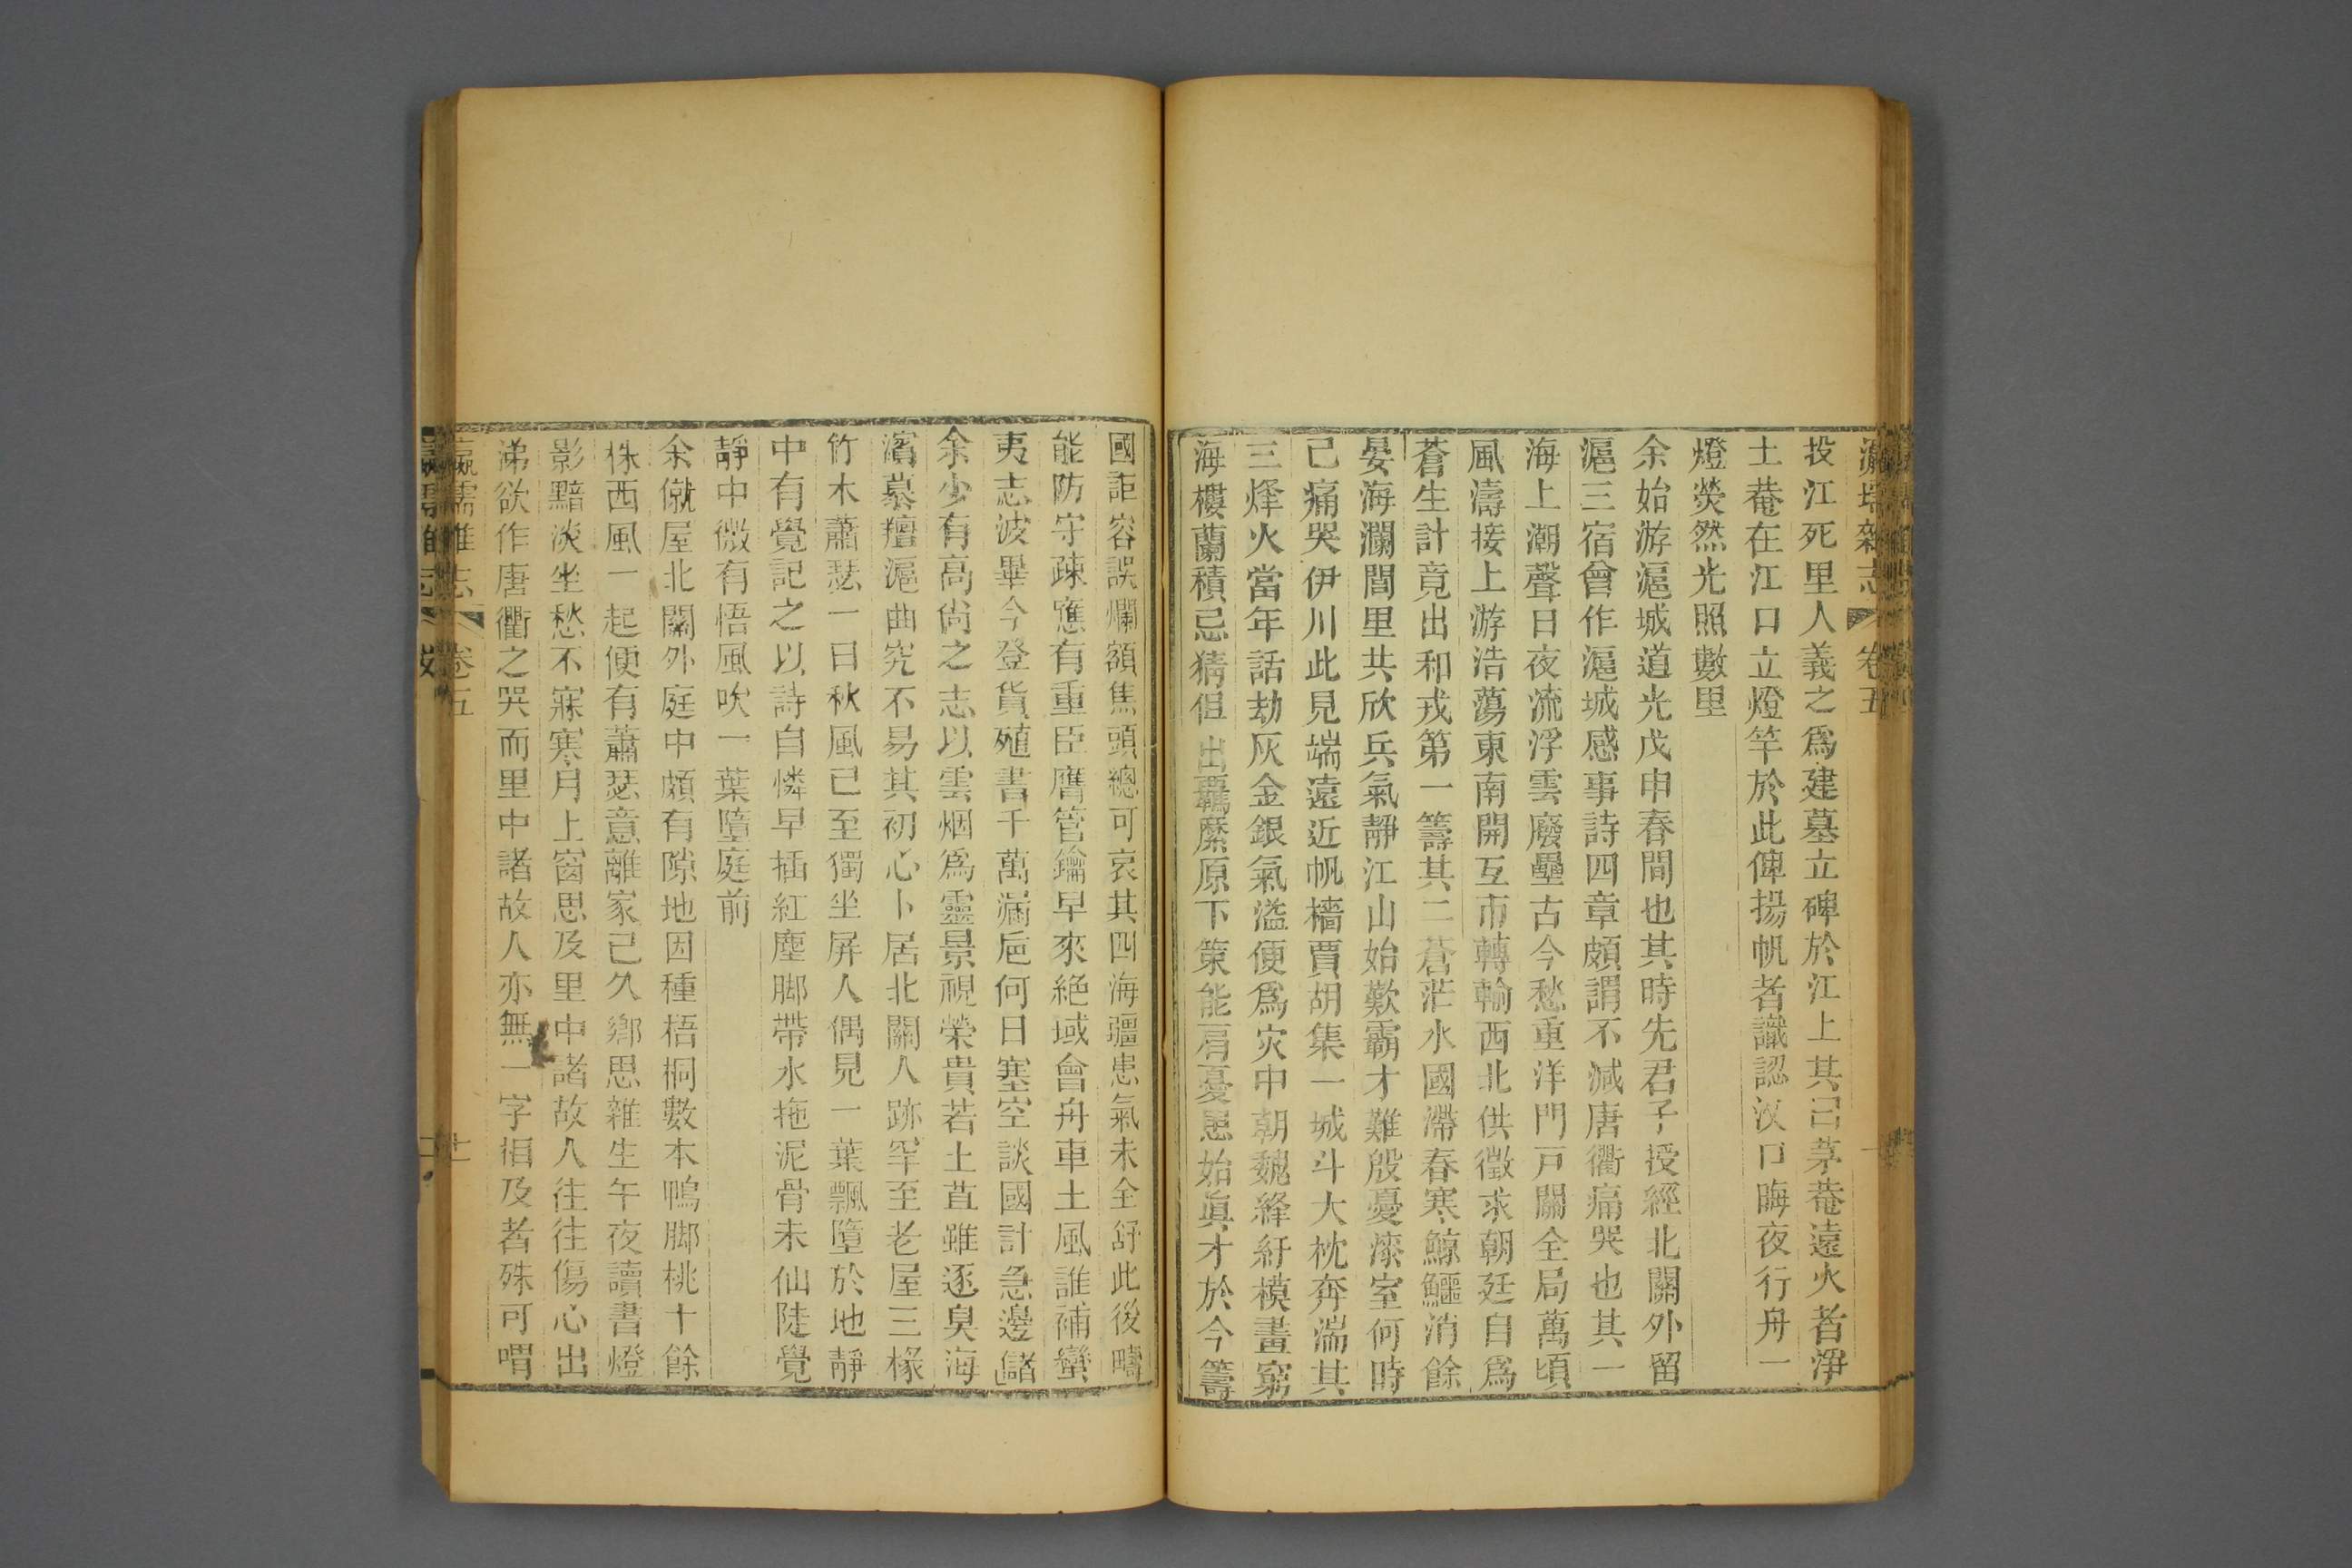 瀛壖雜志 卷五
投江死里人義之爲建墓立碑於江上其己茅菴遠火者淨
土菴在江口立燈竿於此俾揚帆者識認汊口晦夜行舟一
燈熒然光照數里
余始游滬城道光戊申春間也其時先君子授經北關外留
滬三宿曾作滬城感事詩四章頗謂不減唐衢痛哭也其一
海上潮聲日夜流浮雲廢壘古今愁重洋門戸關全局萬頃
風濤接上游浩蕩東南開互市轉輸西北供徵求朝廷自爲
蒼生計竟出和戎第一籌其二蒼茫水國滯春寒鯨鱷消餘
晏海瀾閭里共欣兵氣靜江山始歎霸才難殷憂漆室何時
已痛哭伊川此見端遠近帆檣賈胡集一城斗大枕奔湍其
三烽火當年話劫灰金銀氣溢便爲灾中朝魏絳紆模畫窮
海樓蘭積忌猜但出羈縻原下策能肩憂患始眞才於今籌
國詎容誤爛額焦頭總可哀其四海疆患氣未全舒此後疇
能防守疎應有重臣膺管鑰早來絕域會舟車土風誰補蠻
夷志波畢今登貨殖書千萬漏巵何日塞空談國計急邊儲
余少有高尙之志以雲烟爲靈景視榮貴若土苴雖逐臭海
濱慕羶滬曲究不易其初心卜居北關人跡罕至老屋三椽
竹木蕭瑟一日秋風已至獨坐屏人偶見一葉飄墮於地靜
中有覺記之以詩自憐早插紅塵脚帶水拖泥骨未仙陡覺
靜中微有悟風吹一葉墮庭前
余僦屋北關外庭中頗有隙地因種梧桐數本鴨脚桃十餘
株西風一起便有蕭瑟意離家已久鄉思雜生午夜讀書燈
影黯淡坐愁不寐寒月上窗思及里中諸故人往往傷心出
涕欲作唐衢之哭而里中諸故人亦無一字相及者殊可喟
瀛壖雜志 卷五 十一